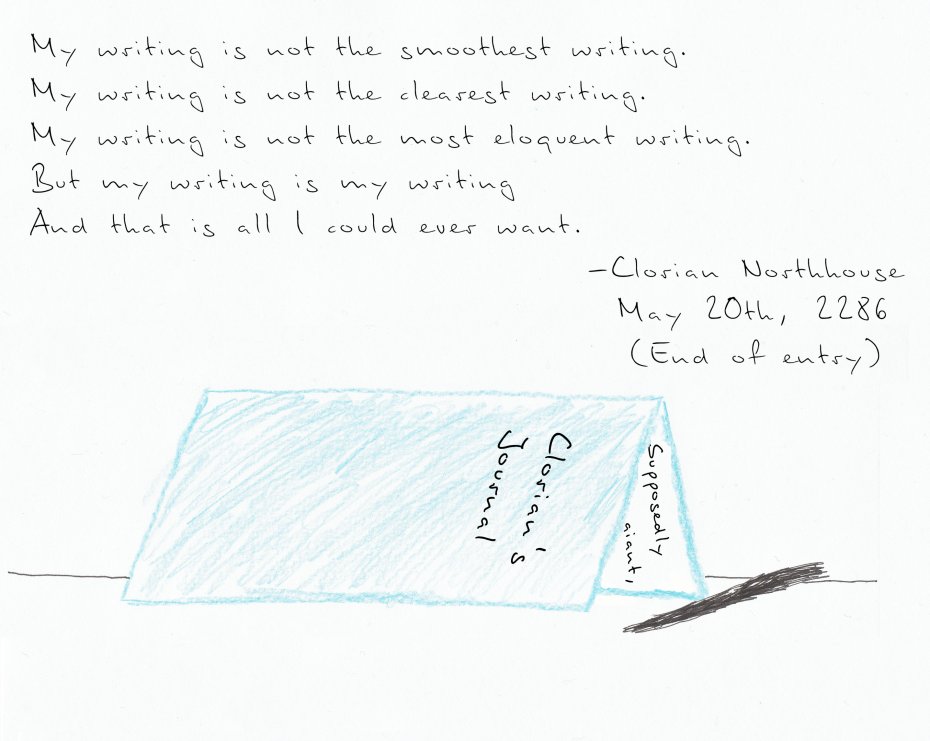 My writing is not the smoothest writing.
My writing is not the clearest writing.
My writing is not the most eloquent writing.
But my writing is my writing
And that is all I could ever want.
-Clorian Northhouse
May 20th, 2286
(End of entry)
Clorian's
Journal
Supposedly
giant,